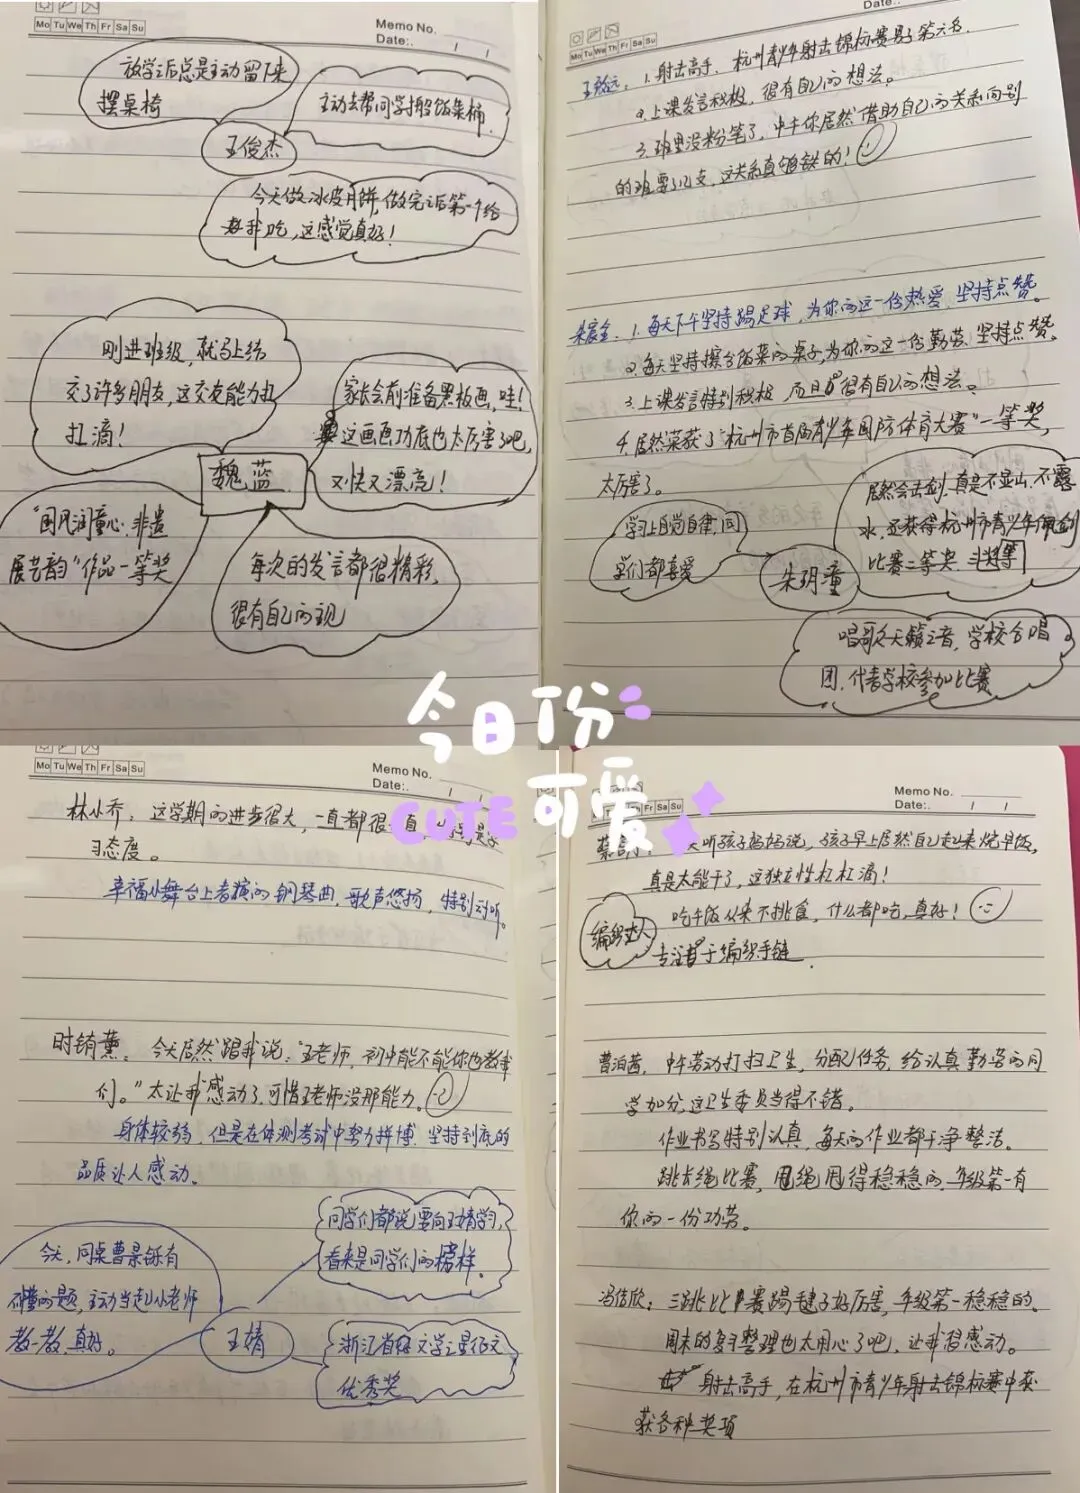 Mo Tu We Th Fr Sa Su
Memo No.
Date:. / /
放学之后总是主动留下来
摆桌椅
主动去帮同学搬饭菜桶.
王俊杰
今天做冰皮月饼,做完之后第一个给
我吃,这感觉真好!
刚进班级,就马上结
交了许多朋友,这交友能力杠
杠滴!
家长会前准备黑板画,哇!
这画画功底也太厉害了吧,
又快又漂亮!
魏蓝
"国风润童心·非遗
展艺韵"作品一等奖
每次的发言都很精彩,
很有自己的
Date:.
Mo Tu We Th Fr Sa Su
王 1.射击高手, 杭州青少年射击锦标赛男子第六名.
2.上课发言积极, 很有自己的想法。
3.班里没粉笔了, 中午你居然借助自己的关系向别
的班要了几支,这关系真够铁的!
1.每天下午坚持踢足球,为你的这一份热爱、坚持点赞。
2.每天坚持擦分饭菜的桌子,为你的这一份勤劳、坚持点赞。
3.上课发言特别积极, 而且很有自己的想法。
4.居然荣获了"杭州市首届青少年国防体育大赛"一等奖,
太厉害了。
学习上自觉自律,同
学们都喜爱
朱玥潼
居然会击剑,真是不显山、不露
水,还获得杭州市青少年佩剑
比赛二等奖
唱歌天籁之音, 学校合唱
团,代表学校参加比赛
今日份
可爱
CUTE
Mo Tu We Th Fr Sa Su
Memo No.
Date:. / /
林小乔: 这学期的进步很大,一直都很
习态度。
幸福小舞台上表演的钢琴曲,歌声悠扬, 特别动听。
今天居然跟我说:"王老师, 初中能不能你也教我
们。"太让我感动了,可惜王老师没那能力。
身体较弱, 但是在体测考试中努力拼搏, 坚持到底的
品质让人感动。
同学们都说要向王婧学习,
看来是同学们的榜样。
今天, 同桌曹 有
不懂的题, 主动当起小老师
教一教,真好。
王婧
浙江省 文学之星征文
优秀奖
Fr Sa Su
Memo No.
Date:. / /
蔡 天听孩子妈妈说, 孩子早上居然自己起来烧早饭,
真是太能干了, 这独立性杠杠滴!
吃午饭从来不挑食, 什么都吃,真好!
编织达人
专注于编织手链.
曹 中午劳动打扫卫生, 分配任务, 给认真勤劳的同
学加分,这卫生委员当得不错。
作业书写特别认真, 每天的作业都干净整洁。
跳长绳比赛, 甩绳甩得稳稳的,年级第一有
你的一份功劳。
冯 欣: 三跳比赛踢毽子好厉害, 年级第一稳稳的。
周末的 整理也太用心了吧, 让我很感动。
射击高手, 在杭州市青少年射击锦标赛中获
获各种奖项